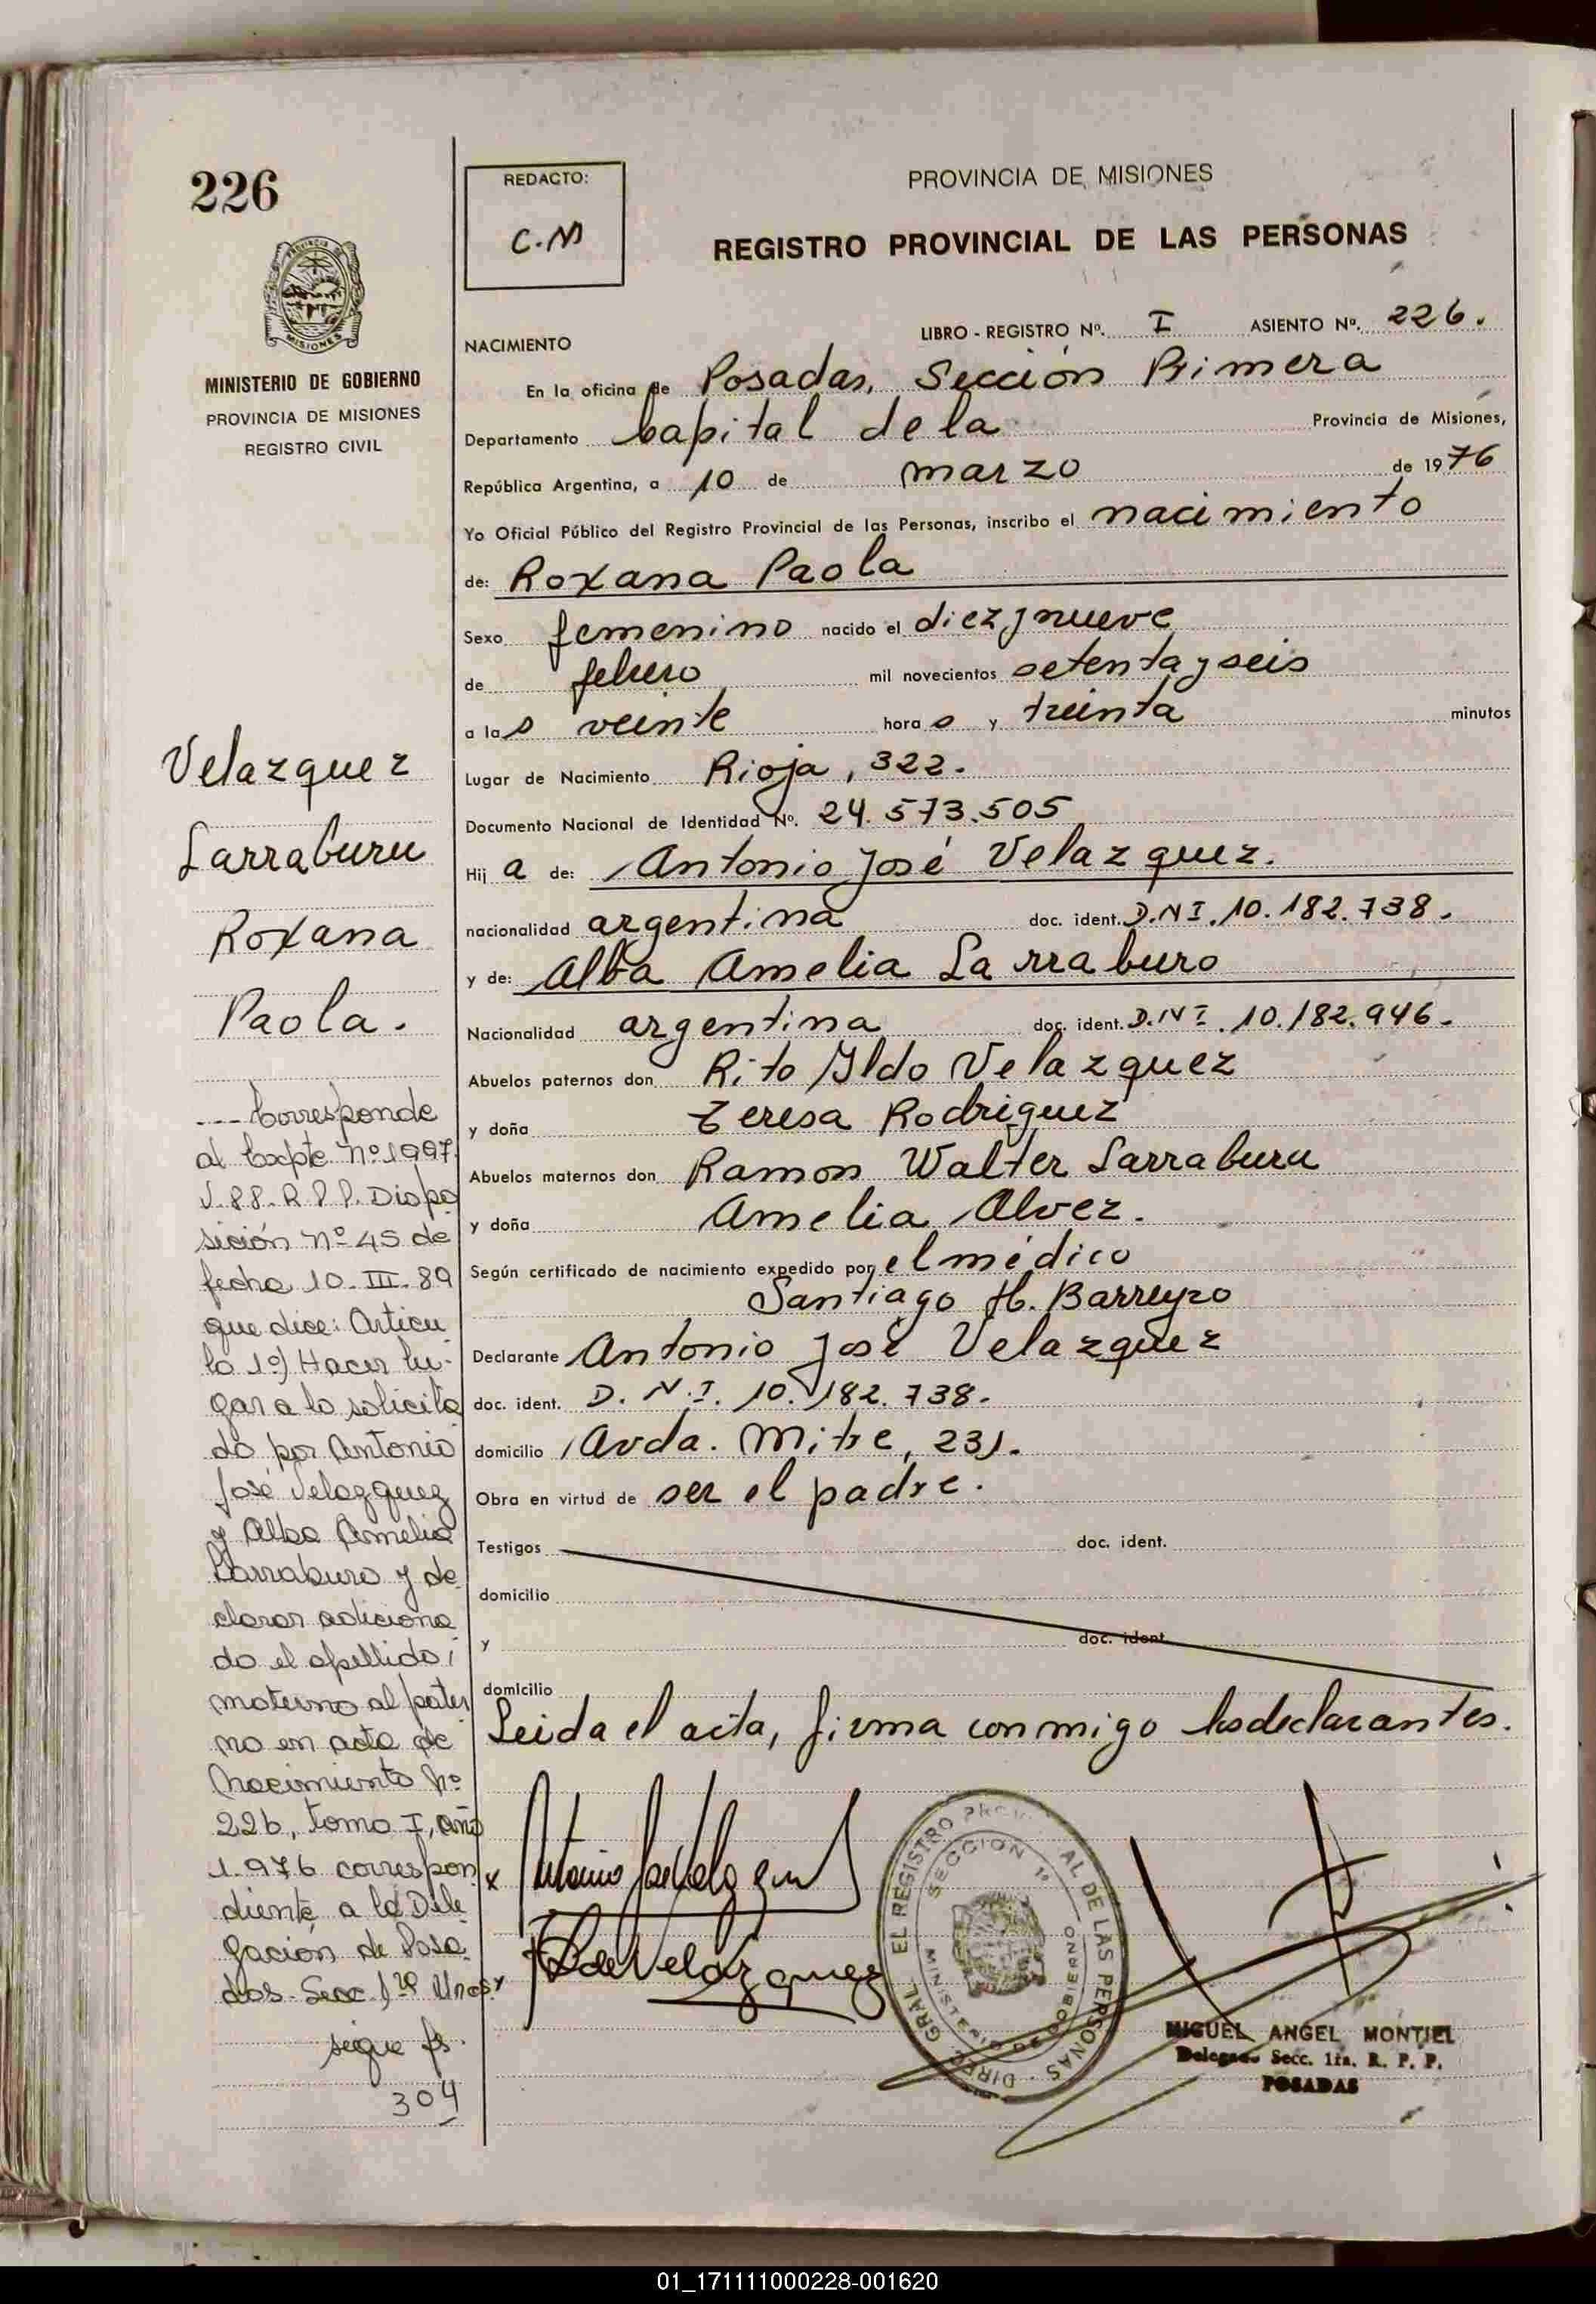 226
PROVINCIA DE MISIONES
MINISTERIO DE GOBIERNO
PROVINCIA DE MISIONES
REGISTRO CIVIL
Velazquez
Larraburu
Roxana
Paola.
--- Corresponde
al Expte nº 1997.
J.88-R.P.P. Dispo
sición nº 45 de
fecha 10-III-89
que dice: Artícu
lo 1º) Hacer lu-
gar a lo solicita
do por Antonio
José Velazquez
y Alba Amelia
Larraburo y de
clarar adiciona
do el apellido
materno al pater
no en acta de
Nacimiento nº
226, tomo I, año
1.976 correspon
diente a la Dele
gación de Posa
das. Secc 1ra
sigue fs.
304
REDACTO:
C.M
PROVINCIA DE MISIONES
REGISTRO PROVINCIAL DE LAS PERSONAS
LIBRO - REGISTRO Nº. I ASIENTO Nº. 226.
NACIMIENTO
En la oficina de Posadas, Sección Primera
Departamento Capital de la Provincia de Misiones,
República Argentina, a 10 de marzo de 1976
Yo Oficial Público del Registro Provincial de las Personas, inscribo el nacimiento
de: Roxana Paola
Sexo femenino nacido el diez y nueve
de febrero mil novecientos setenta y seis
a las veinte horas y treinta minutos
Lugar de Nacimiento Rioja, 322.
Documento Nacional de Identidad Nº. 24.573.505
Hija de: Antonio José Velazquez.
nacionalidad argentina doc. ident. D.N I. 10.182.738.
y de: Alba Amelia Larraburo
Nacionalidad argentina doc. ident. D.N I. 10.182.946.
Abuelos paternos don Rito Yldo Velazquez
y doña Teresa Rodriguez
Abuelos maternos don Ramon Walter Larraburu
y doña Amelia Alvez.
Según certificado de nacimiento expedido por el médico
Santiago H. Barreyro
Declarante Antonio José Velazquez
doc. ident. D.N.I. 10.182.738.
domicilio Avda. Mitre, 231.
Obra en virtud de ser el padre.
Testigos doc. ident.
domicilio
y doc. ident.
domicilio
Leida el acta, firma conmigo los declarantes.
x Antonio José Velazquez
de Velázquez
DIREC. GRAL EL REGISTRO PROV AL DE LAS PERSONAS
SECCION 1º
MINISTERIO DE GOBIERNO
MIGUEL ANGEL MONTIEL
Delegado Secc. 1ra. R. P. P.
POSADAS
01_171111000228-001620